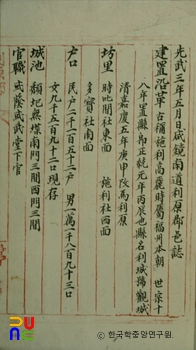 光武三年五月日咸鏡南道利原郡邑誌
建置沿革 古稱施利高麗時屬福州本朝 世宗十
八年置縣 正統元年丙辰也縣名利城號觀城
清嘉慶五年庚申改爲利原
坊里 時北間社東面 施利社西面
多寶社南面
戶口 民戶二千三百五十二戶 男一萬一千八百九十三口
女九千五百九十二口現存
城池 頹圮無煤南門三間西門三間
官職 威武堂下官
© 한국학중앙연구원